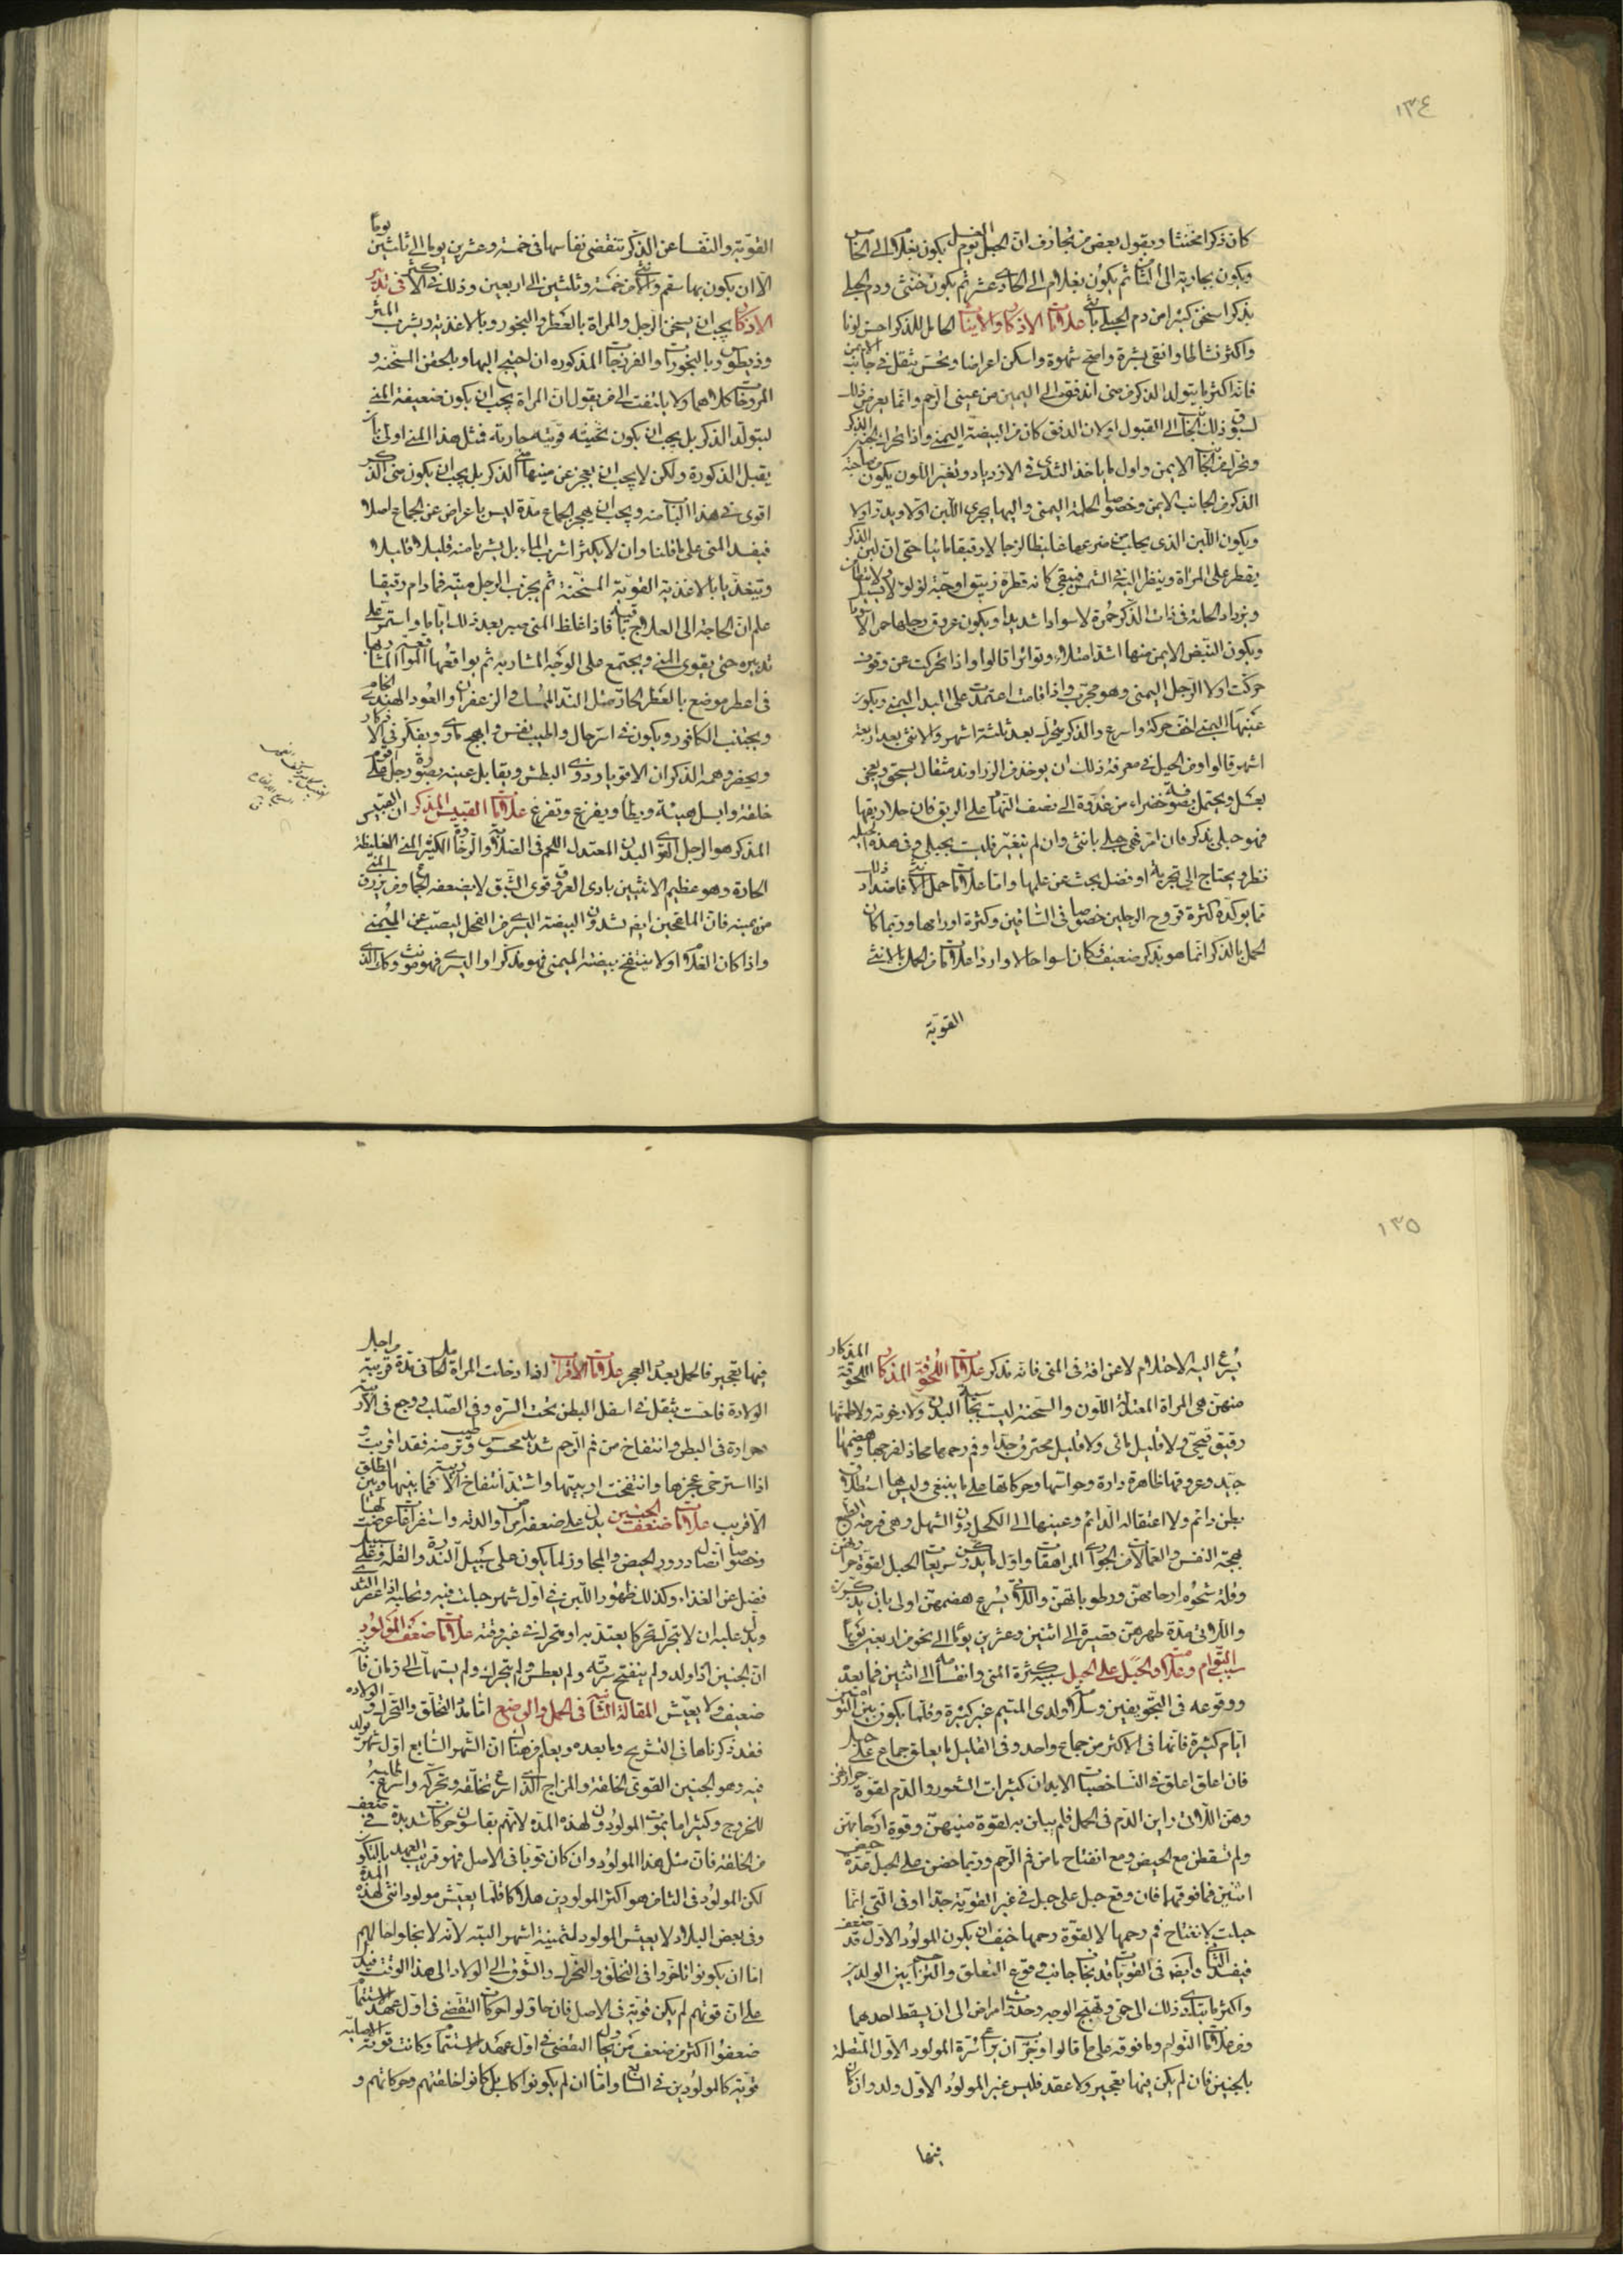 ١٣٤
كان ذكرا مخنثا ويقول بعض من تجازف ان الحبل يوم الغسل يكون بغلام الى الخامس
ويكون بجارية الى الثامن ثم يكون بغلام الى الحادي عشر ثم يكون خنثى ودم الحبلى
بذكر اسخن كثيرا من دم الحبلى بانثى علامات الاذكار والايناث الحامل للذكر احسن لونا
واكثر نشاطا وانقى بشرة واصح شهوة واسكن اعراضا وتحس بثقل في جانب الايمن
فان اكثر ما يتولد الذكر من منى اندفق الى اليمين من عيني الرحم وانما يعرض ذلك
لسبوق ذلك الجانب الى القبول او لان الدفق كان من البيضة اليمنى واذا تحرك الجنين الذكر
وتحرك من الجانب الايمن واول ما ياخذ الثدى في الازدياد وتغير اللون يكون من صاحبة
الذكر من الجانب الايمن وخصوصا الحلمة اليمنى واليها يجرى اللبن اولا ويدر اولا
ويكون اللبن الذى يحلب من ضرعها غليظا لزجا لا رقيقا مائيا حتى ان لبن الذكر
يقطر على المراة وينظر اليه في الشمس فيبقى كانه قطرة زيبق او حبة لولو لا يسيل ولا يتطامن
وتزداد الحلمة في ذات الذكر حمرة لا سوادا شديدا ويكون عروق رجليها حمرا لا سودا
ويكون النبض الايمن منها اشد امتلاء وتواترا قالوا واذا تحركت عن وقوف
حركت اولا الرجل اليمنى وهو مجرب واذا قامت اعتمدت على اليد اليمنى ويكون
عينها اليمنى اخف حركة واسرع والذكر يتحرك بعد ثلثة اشهر والانثى بعد اربعة
اشهر قالوا ومن الحيل في معرفة ذلك ان يوخذ من الزراوند مثقال يسحق ويعجن
بعسل ويحتمل بصوفة خضراء من غدوة الى نصف النهار على الريق فان حلا ريقها
فهو حبلى بذكر فان امر فهى حبلى بانثى وان لم يتغير فليست بحبلى وفي هذه الحيلة
نظر ويحتاج الى تجربة او فضل بحث عن علمها واما علامات حمل الانثى فاضداد ذلك
مما يوكده كثرة قروح الرجلين خصوصا في الساقين وكثرة اورامها وربما كان
الحمل بالذكر انما هو بذكر ضعيف فكان اسوا حالا وارذا علامات من الحمل بالانثى
القوية
القوية والنفساء عن الذكر تنقضى نفاسها في خمسة وعشرين يوما الى ثلثين يوما
الا ان يكون بها سقم والانثى من خمسة وثلثين الى اربعين وذلك في الاكثر في تدبير
الاذكار يجب ان يسخن الرجل والمراة بالعطر والبخور وبالاغذية وبشرب المثر
وذيطوس وبالبخورات والفرزجات المذكورة ان احتيج اليها وبالحقن المسخنة و
المروخات كلاهما ولا يلتفت الى من يقول ان المراة يجب ان يكون ضعيفة المنى
ليتولد الذكر بل يجب ان يكون ثخينه قويته حاريته فمثل هذا المنى اولى بان
يقبل الذكورة ولكن لا يجب ان يعجز عن منيها منى الذكر بل يجب ان يكون منى الذكر
اقوى في هذا الباب منه ويجب ان يهجر الجماع مدة ليس باعراض عن الجماع اصلا
فيفسد المنى على ما قلنا وان لا يكثر شرب الماء بل يشربا منه قليلا قليلا
ويتغذيا بالاغذية القوية المسخنة ثم يجرب الرجل منيه فما دام رقيقا
علم ان الحاجة الى العلاج باقية فاذا غلظ المنى صبر بعد ذلك اياما واستمر على
تدبيره حتى يقوى المنى ويجتمع على الوجه المشار به ثم يواقعها المواقعة المشار بها
في اعطر موضع بالعطر الحار مثل الند المسك والزعفران والعود الهندى الخام
ويجتنب الكافور ويكون في اسر حال واطيب نفس وابهج ماوى ويفكر في الاذكار
ويحضر وهمه الذكران الاقوياء ذوى البطش ويقابل عينيه بصورة رجل على اقوى
خلقة وابسل هيئة ويطأ ويفرغ ويتفرغ علامات القبيس المذكر ان القبيس
المذكر هو الرجل القوى البدن المعتدل اللحم في الصلابة والرخاوة الكثير المنى الغليظه
الحادة وهو عظيم الانثيين بادى العروق قوى الشبق لا يضعفه الجماع ومن يزرق المنى
من يمينه فان الملقحين ايضا تشدون البيضة اليسرى من الفحل ليصب عن اليمنى
واذا كان الغلام اولا ينتفخ بيضته اليمنى فهو مذكر او اليسرى فهو مونث وكذلك الذى
١٣٥
يسرع اليه الاحتلام لا عن افة في المنى فانه مذكر علامات اللقوة المذكار اللقوة المذكار
منهن هى المراة المعتدلة اللون والسحنة ليست بجاسية البدن ولا رخوته ولا طمثها
رقيق قيحى ولا قليل مائى ولا قليل محترق جدا وفم رحمها محاذ لفرجها وهضمها
جيد وعروقها ظاهرة دارة وحواسها وحركاتها على ما ينبغى وليس بها استطلاق
بطن دائم ولا اعتقاله الدائم وعينها الى الكحل دون الشهل وهى فرحة الطبع
بهجة النفس والغالمات من الجوارى المراهقات واول ما يدركن سريعات الحبل لقوة حرارتهن
وقلة شحوم ارحامهن ورطوباتهن واللاتى يسرع هضمهن اولى بان يذكرن
واللاتى مدة طهرهن قصيرة الى اثنين وعشرين يوما الى نحو من اربعين يوما
سبب التوام وعلاماته والحبل على الحبل سببه كثرة المنى وانقسامه الى اثنين فما بعد
ووقوعه في التجويفين وسلامة ولدى المتيم غير كثيرة وقلما يكون بين التوامين
ايام كثيرة فانها في الاكثر من جماع واحد وفي القليل ما يعلق جماع على حبل
فان اعلق اعلق في النساء خصيبات الابدان كثيرات الشعور والدم لقوة حرارتهن
وهن اللاتى راين الدم في الحمل فلم يبلن به لقوة منيهن وقوة ارحامهن
ولم تسقطن مع الحيض ومع انفتاح ما من فم الرحم وربما حضن على الحبل عدة حيض
اثنين فما فوقها فان وقع حبل على حبل في غير القوية جدا او في التى انما
حبلت لانفتاح فم رحمها لا لقوة رحمها خيف ان يكون المولود الاول قد ضعف
فيفسد الثانى وايضا في القويات قد يخاف جانب وقوع التعلق والتزاحم بين الولدين
واكثر ما يتادى ذلك الى حمى وتهيج الوجه وحدوث امراض الى ان يسقط احدهما
ومن علامات التوام وما فوقه على ما قالوا وجرب ان يراعى سرة المولود الاول المتصلة
بالجنين فان لم يكن فيها تعجير ولا عقد فليس غير المولود الاول ولد وان كان
فيها
فيها تعجير فالحمل بعدد العجر علامات الاقراب اذا دخلت المراة الحامل في مدة قريبة من اجل
الولادة فاحست بثقل في اسفل البطن تحت السرة وفي الصلب ووجع في الاربية
وحرارة في البطن وانتفاخ من فم الرحم شديد محسوس وترطب منه فقد اقربت و
اذا استرخى عجزها وانتفخت اربيتها واشتد انتفاخ الاربية فما بينها وبين الطلق
الا قريب علامات ضعف الجنين يدل على ضعفه امراض والدته واستفراغات عرضت لها
وخصوصا اتصال درور الحيض والمجاوز لما يكون على سبيل الندرة والقلة وعلى سبيل
فضل عن الغذاء وكذلك ظهور اللبن في اول شهر حبلت فيه وتحلبه اذا عصر الثدى
ويدل عليه ان لا تتحرك تحركا يعتد به او يتحرك في غير وقته علامات ضعف المولود
ان الجنين اذا ولد ولم ينفتح سرته ولم يعطس ولم يتحرك ولم يستهل الى زمان فانه
ضعيف ولا يعيش المقالة الثانية في الحمل والوضع اما مدة التخلق والتحرك والولادة
فقد ذكرناها في التشريح وما بعده ويعلم من هناك ان الشهر السابع اول شهر يولد
فيه وهو الجنين القوى الخلقة والمزاج الذى اسرع تخلقه وتحركه واسرع طلبه
للخروج وكثيرا ما يموت المولودون لهذه المدة لانهم يقاسون حركات شديدة في ضعف
من الخلقة فان مثل هذا المولود وان كان قويا في الاصل فهو قريب العهد بالتكون
لكن المولود في الثامن هو اكثر المولودين هلاكا قلما يعيش مولود انثى لهذه المدة
وفي بعض البلاد لا يعيش المولود لثمنية اشهر البتة لانه لا يخلوا حالهم
اما ان يكونوا تاخروا في التخلق والتحرك والشوق الى الولاد الى هذا الوقت فيدل
على ان قوتهم لم يكن قوية في الاصل فان حاولوا حركات التقضى في اول عهد الاستتمام
ضعفوا اكثر من ضعف من يحاول التقضى في اول عهد الاستتمام وكانت قوته الاصلية
قوية كالمولودين في السابع واما ان لم يكونوا كذلك بل كانوا خلقتهم وحركاتهم و